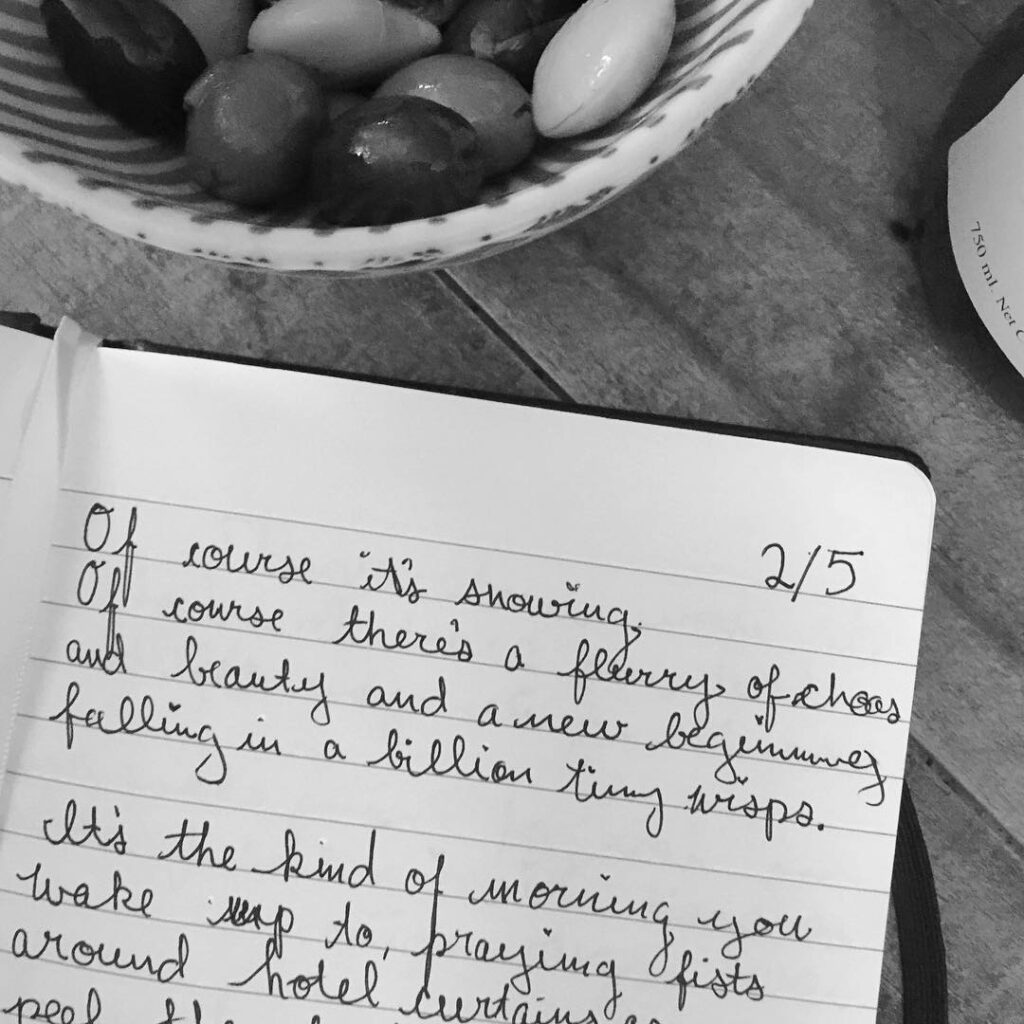 750 ml. Net
2/5
Of course it's snowing.
Of course there's a flurry of chaos
and beauty and a new beginning
falling in a billion tiny wisps.
It's the kind of morning you
wake up to, praying fists
around hotel curtains as
peel the